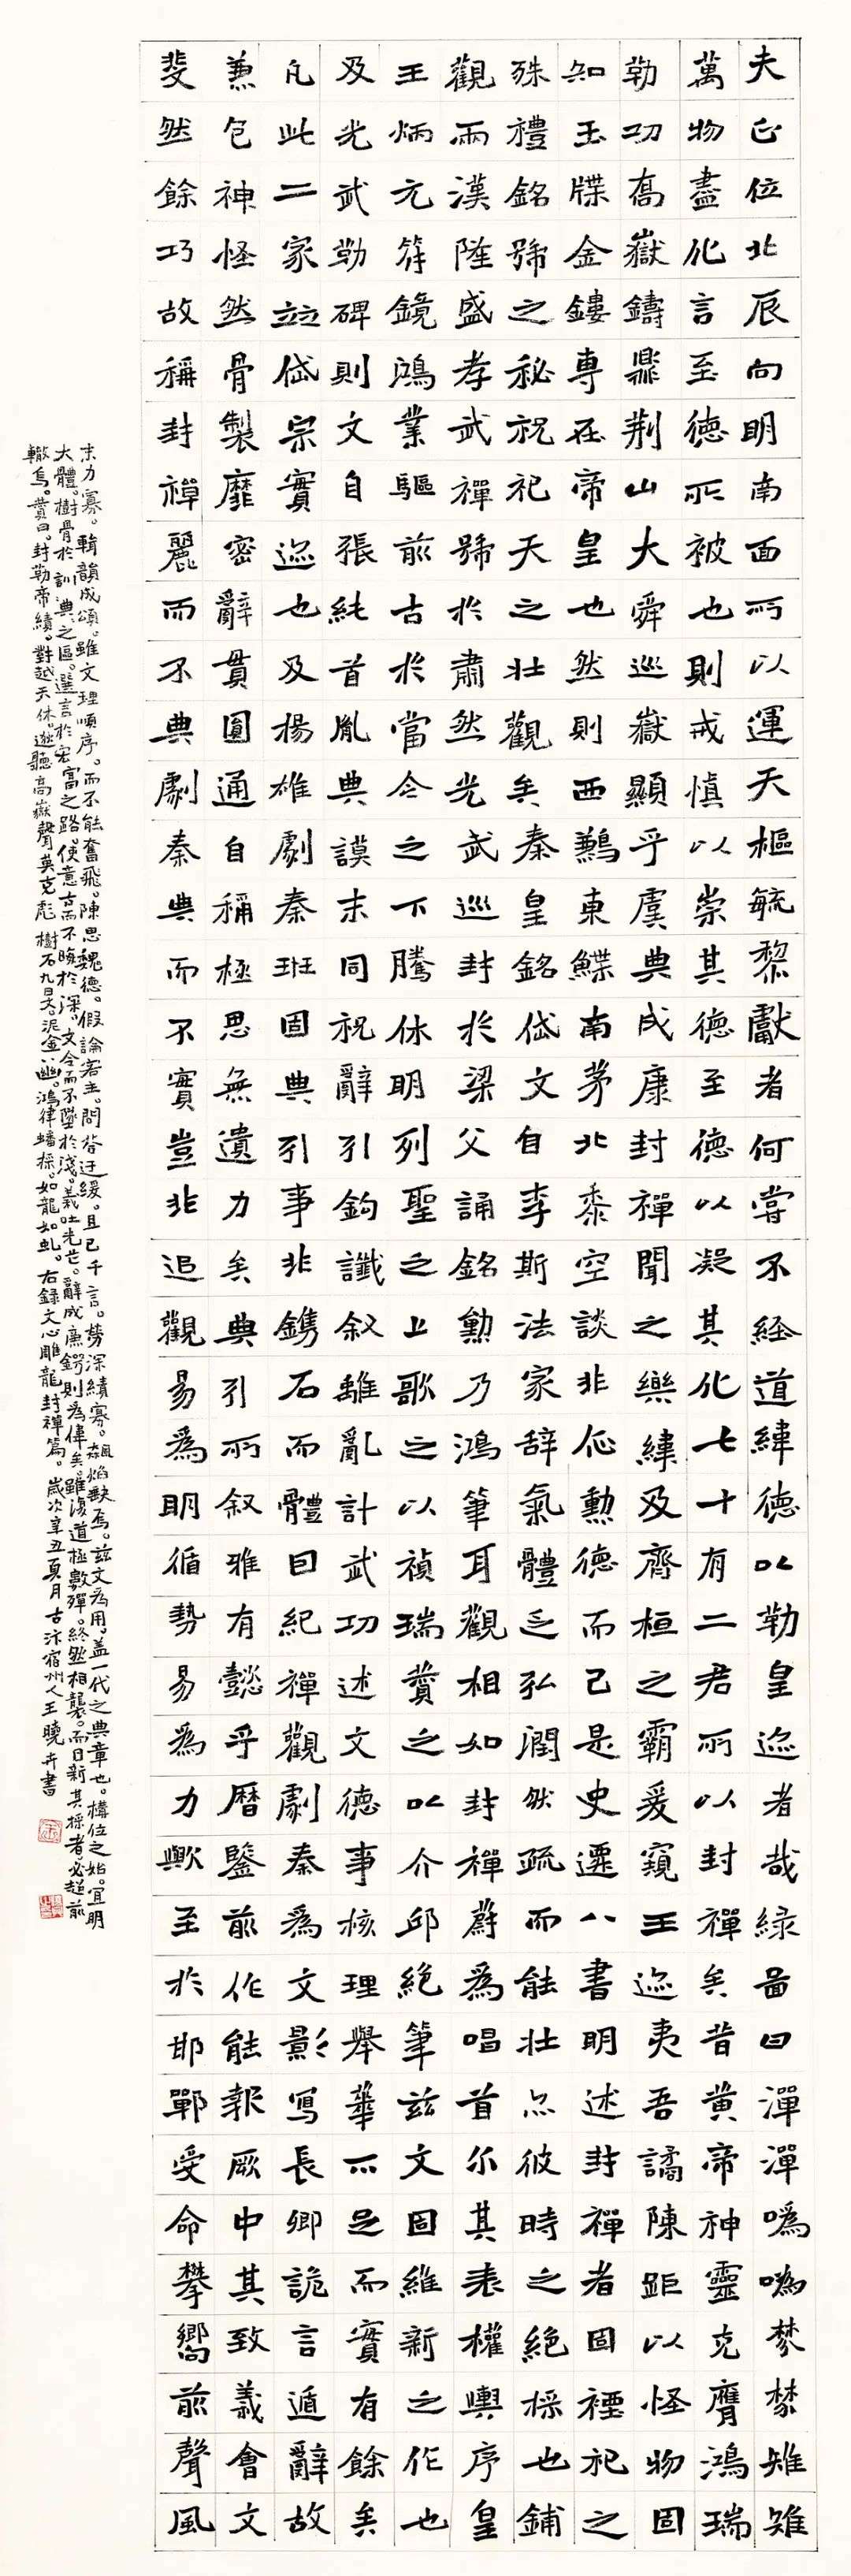 夫正位北辰向明南面所以運天樞毓黎獻者何嘗不經道緯德以勒皇迹者哉綠圖曰潬潬噅噅棼棼雉雉
萬物盡化言至德所被也則戒慎以崇其德至德以凝其化七十有二君所以封禪矣昔黃帝神靈克膺鴻瑞
勒功喬嶽鑄鼎荊山大舜巡嶽顯乎虞典成康封禪聞之樂緯及齊桓之霸爰窺王迹夷吾譎陳距以怪物固
知玉牒金鏤專在帝皇也然則西鶼東鰈南茅北黍空談非徵勳德而已是史遷八書明述封禪者固禋祀之
殊禮銘號之秘祝祀天之壯觀矣秦皇銘岱文自李斯法家辭氣體乏弘潤然疏而能壯亦彼時之絕採也鋪
觀兩漢隆盛孝武禪號於肅然光武巡封於梁父誦銘勳乃鴻筆耳觀相如封禪蔚為唱首爾其表權輿序皇
王炳元符鏡鴻業驅前古於當今之下騰休明列聖之上歌之以禎瑞贊之以介邱絕筆茲文固維新之作也
及光武勒碑則文自張純首胤典謨末同祝辭引鉤讖敘離亂計武功述文德事核理舉華不足而實有餘矣
凡此二家並岱宗實迹也及揚雄劇秦班固典引事非鐫石而體曰紀禪觀劇秦為文影寫長卿詭言遁辭故
兼包神怪然骨製靡密辭貫圓通自稱極思無遺力矣典引所敘雅有懿乎曆鑒前作能報厥中其致義會文
斐然餘巧故稱封禪麗而不典劇秦典而不實豈非追觀易為明循勢易為力歟至於邯鄲受命攀嚮前聲風
末力寡。輯韻成頌。雖文理順序。而不能奮飛。陳思魏德。假論客主。問答迂緩。且已千言。勞深績寡。飆焰缺焉。茲文為用。蓋一代之典章也。構位之始。宜明
大體。樹骨於訓典之區。選言於宏富之路。使意古而不晦於深。文今而不墜於淺。義吐光芒。辭成廉鍔。則為偉矣。雖復道極數殫。終然相襲。而日新其採者。必超前
轍焉。贊曰。封勒帝績。對越天休。逖聽高嶽。聲英克彪。樹石九旻。泥金八幽。鴻律蟠採。如龍如虬。右錄文心雕龍封禪篇。歲次辛丑夏月古汴宿州人王曉卉書